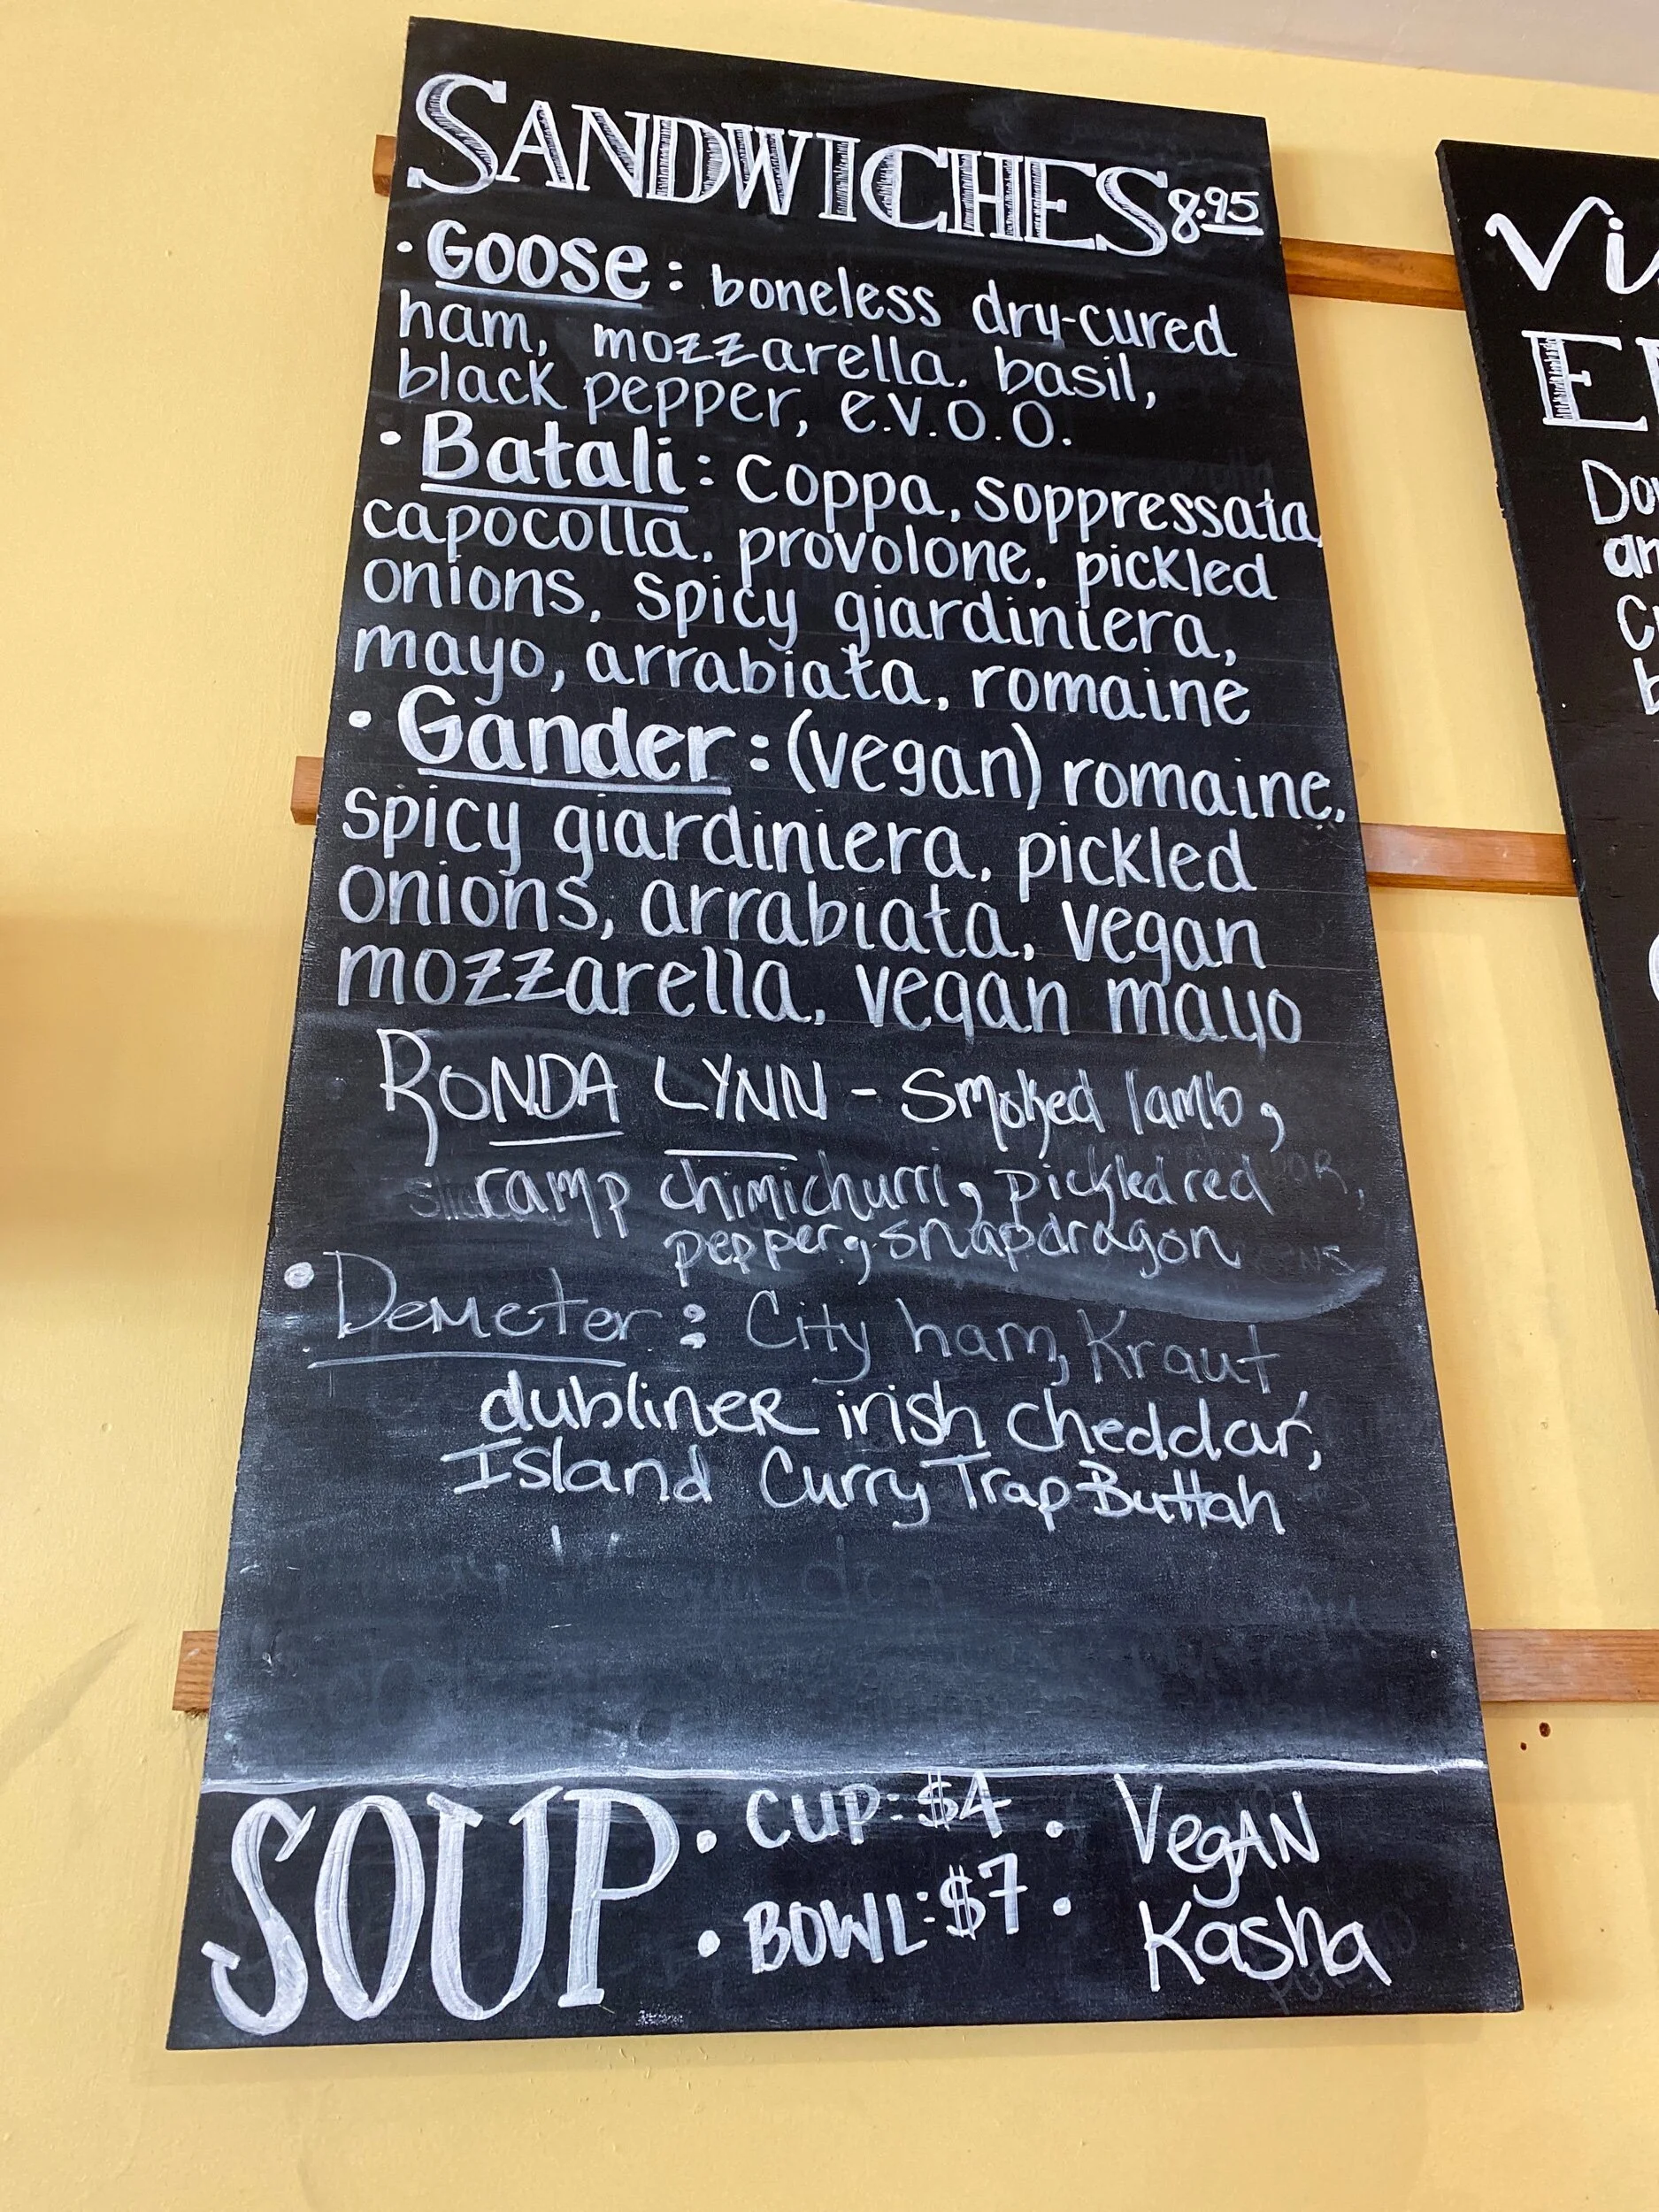 SANDWICHES 8.95
• Goose: boneless dry-cured
ham, mozzarella, basil,
black pepper, e.v.o.o.
• Batali: coppa, soppressata,
capocolla, provolone, pickled
onions, spicy giardiniera,
mayo, arrabiata, romaine
• Gander: (vegan) romaine,
spicy giardiniera, pickled
onions, arrabiata, vegan
mozzarella, vegan mayo
RONDA LYNN - Smoked lamb,
ramp chimichurri, pickled red
pepper, snapdragon
• Demeter: City ham, Kraut
dubliner irish cheddar,
Island Curry Trap Buttah
SOUP • CUP: $4 • VegAN
• BOWL: $7 • Kasha
Vi
E
Do
an
C
b